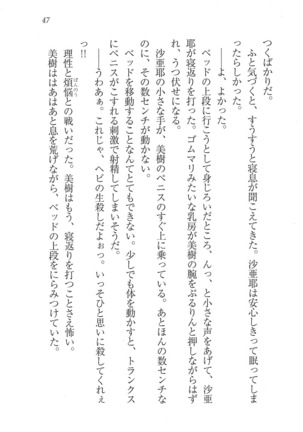 47
つくばかりだ。
ふと気づくと、すうすうと寝息が聞こえてきた。沙亜耶は安心しきって眠ってしま
ったらしかった。
――よ、よかった。
ベッドの上段に行こうとして身じろいだところ、んっ、と小さな声をあげて、沙亜
耶が寝返りを打った。ゴムマリみたいな乳房が美樹の腕をぷるりんと押しながらはず
れ、うつ伏せになる。
沙亜耶の小さな手が、美樹のペニスのすぐ上に乗っている。あとほんの数センチな
のに、その数センチが動かない。
ベッドを移動することなんてとてもできない。少しでも体を動かすと、トランクス
にペニスがこすれる刺激で射精してしまいそうだ。
――うわあぁ。これじゃ、ヘビの生殺しだよぉっ。いっそひと思いに殺してくれぇ
っ!!
理性と煩悩との戦いだった。美樹はもう、寝返りを打つことさえ怖い。
ぼんのう
美樹ははあはあと息を荒げながら、ベッドの上段をにらみつけていた。